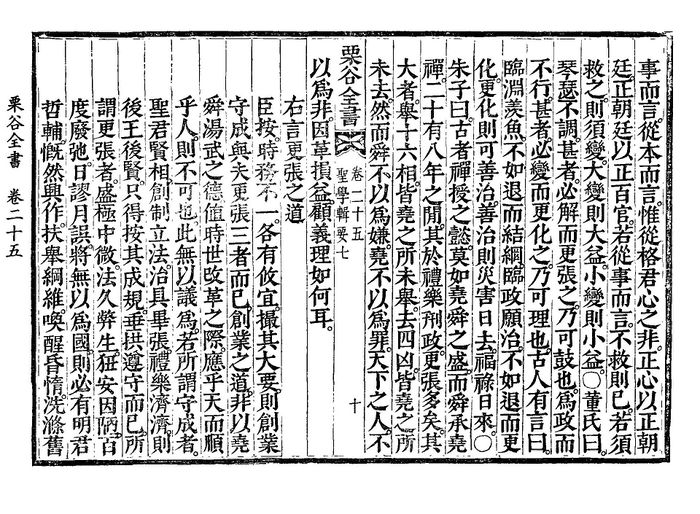 事而言從本而言惟從格君心之非正心以正朝
廷正朝廷以正百官若從事而言不救則已若須
救之則須變大變則大益小變則小益○董氏曰
琴瑟不調甚者必解而更張之乃可鼓也爲政而
不行甚者必變而更化之乃可理也古人有言曰
臨淵羨魚不如退而結網臨政願治不如退而更
化更化則可善治善治則災害日去福祿日來○
朱子曰古者禪授之懿莫如堯舜之盛而舜承堯
禪二十有八年之閒其於禮樂刑政更張多矣其
大者擧十六相皆堯之所未擧去四凶皆堯之所
未去然而舜不以爲嫌堯不以爲罪天下之人不
栗谷全書 卷二十五 聖學輯要七 十
以爲非因革損益顧義理如何耳
右言更張之道
臣按時務不一各有攸宜撮其大要則創業
守成與夫更張三者而已創業之道非以堯
舜湯武之德値時世改革之際應乎天而順
乎人則不可也此無以議爲若所謂守成者
聖君賢相創制立法治具畢張禮樂濟濟則
後王後賢只得按其成規垂拱遵守而已所
謂更張者盛極中微法久弊生狃安因陋百
度廢弛日謬月誤將無以爲國則必有明君
哲輔慨然興作扶擧綱維喚醒昏惰洗滌舊
栗谷全書 卷二十五